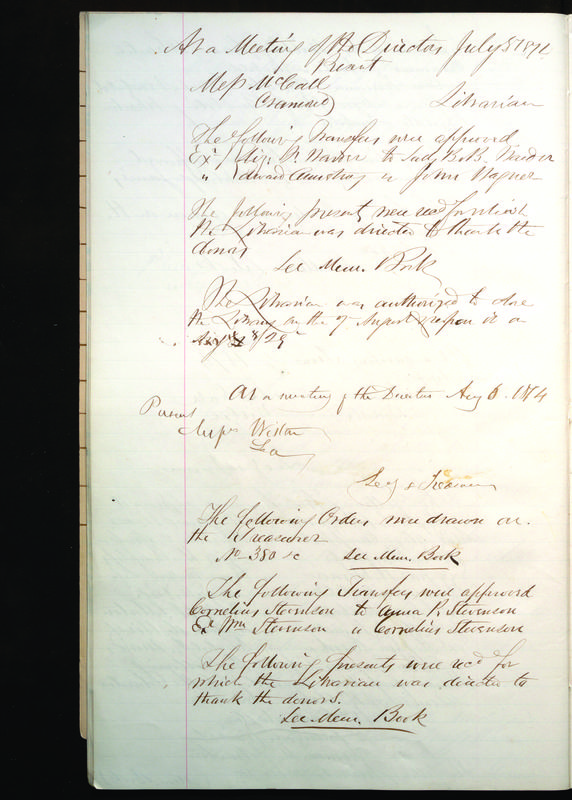 At a Meeting of the Directors July 5 1874
Present
Mess McCall
Cramond Librarian
The following Transfers were approved
Exr to
" Edward Armstrong " John Wagner
The following presents were recd for which
the Librarian was directed to thank the
donors
See Mem. Book
The Librarian was authorized to close
the Library on the 7 August & reopen it on
Aug
At a meeting of the Directors Aug 6. 1874
Present
Messrs Wistar
Lea
Secy & Treasurer
The following Orders were drawn on
the Treasurer
No 380 &c See Mem. Book
The following Transfers were approved
Cornelius Stevenson to Anna P. Stevenson
Ex Wm Stevenson " Cornelius Stevenson
The following presents were recd for
which the Librarian was directed to
thank the donors.
See Mem. Book